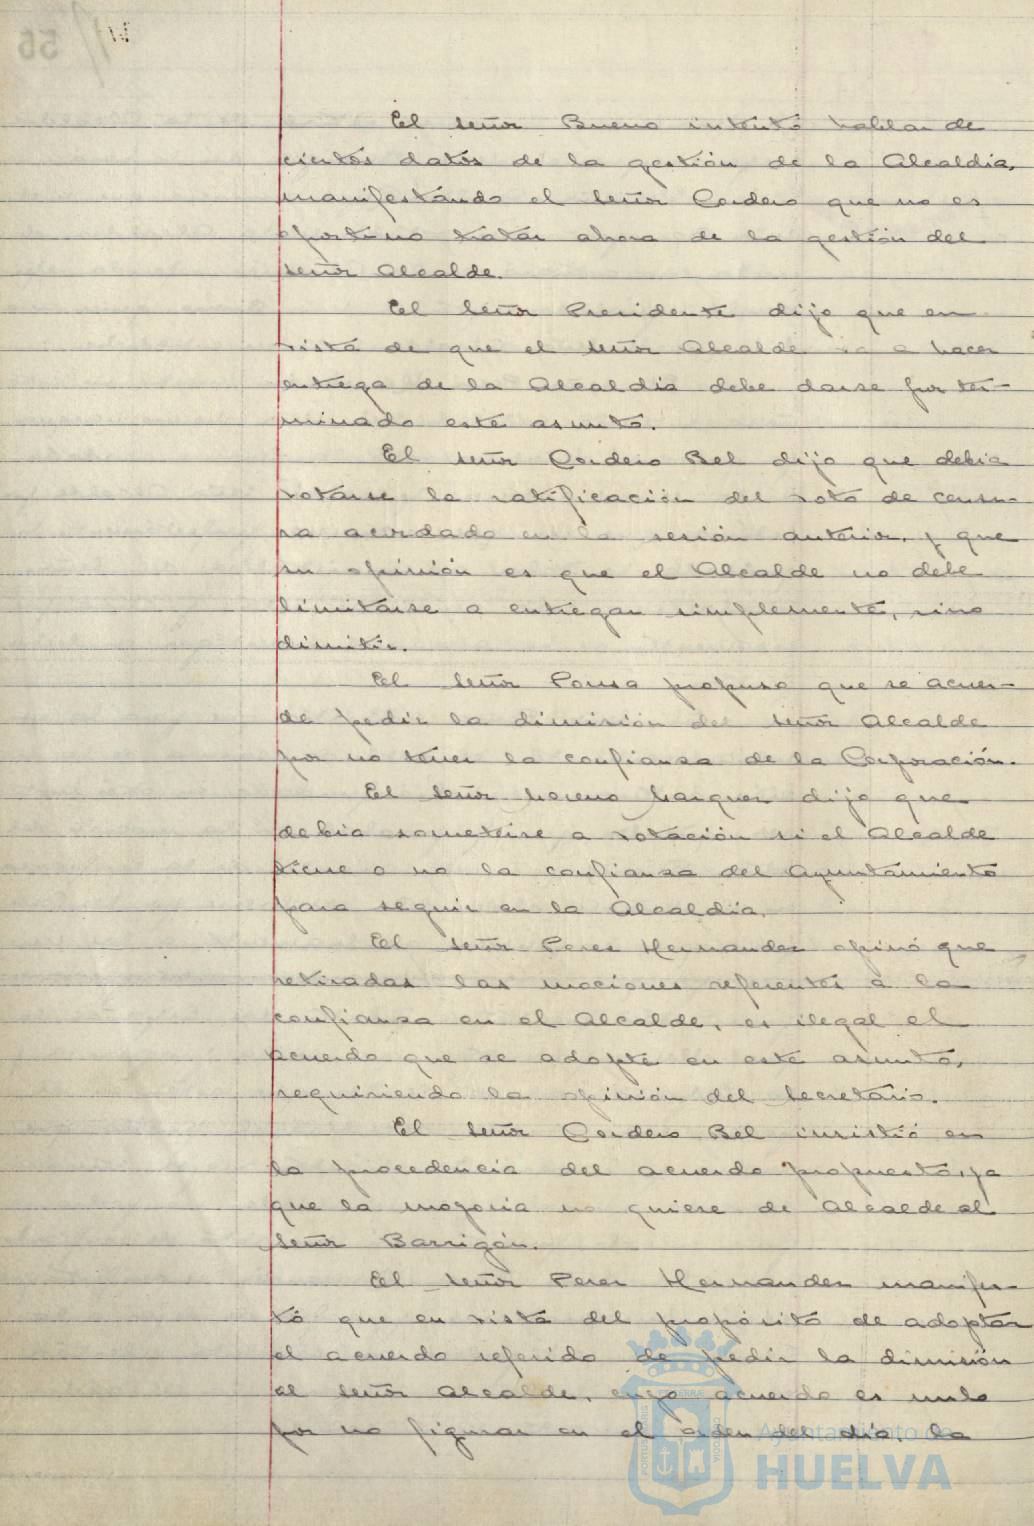 El señor Bueno intentó hablar de
ciertos datos de la gestión de la Alcaldia,
manifestando el señor Cordero que no es
oportuno tratar ahora de la gestión del
señor Alcalde.
El señor Presidente dijo que en
vista de que el señor Alcalde va a hacer
entrega de la Alcaldia debe darse por ter-
minado este asunto.
El señor Cordero Bel dijo que debia
votarse la ratificación del voto de censu-
ra acordado en la sesión anterior, y que
su opinión es que el Alcalde no debe
limitarse a entregar simplemente, sino
dimitir.
El señor Ponsa propuso que se acuer-
de pedir la dimisión del señor Alcalde
por no tener la confianza de la Corporación.
El señor Moreno Marquez dijo que
debia someterse a votación si el Alcalde
tiene o no la confianza del Ayuntamiento
para seguir en la Alcaldia.
El señor Perez Hernandez opinó que
retiradas las mociones referentes a la
confianza en el Alcalde, es ilegal el
acuerdo que se adopte en este asunto,
requiriendo la opinión del Secretario.
El señor Cordero Bel insistió en
la procedencia del acuerdo propuesto, ya
que la mayoria no quiere de Alcalde al
señor Barrigón.
El señor Perez Hernandez manifes-
tó que en vista del propósito de adoptar
el acuerdo referido de pedir la dimisión
al señor Alcalde, cuyo acuerdo es nulo
por no figurar en el orden del dia, la
Ayuntamiento de
HUELVA